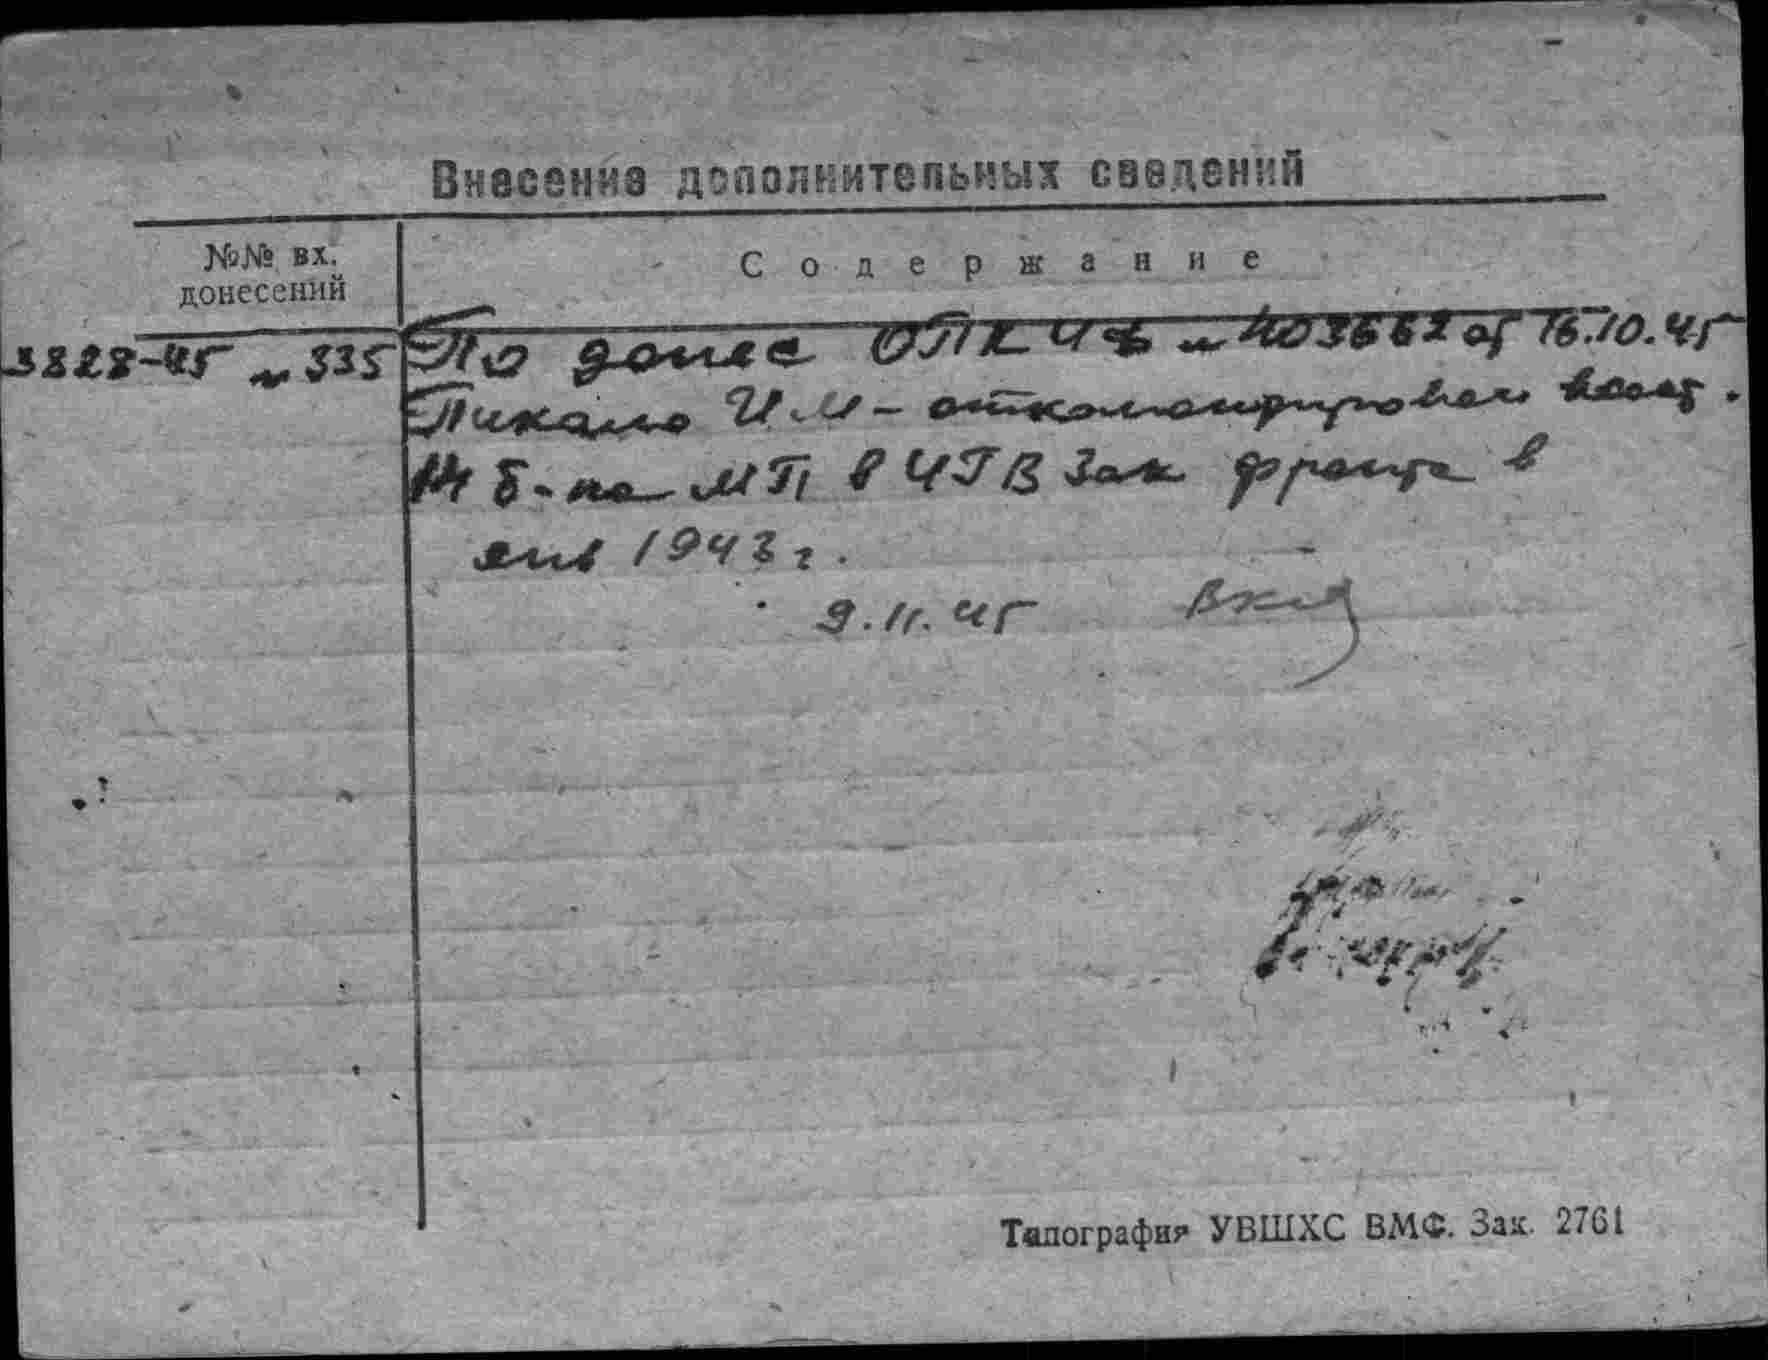 Внесение дополнительных сведений
№№ вх. донесений
Содержание
3828-45 н 335
По донес ОПК ЧФ н 403662 от 16.10.45
Пикало И.М - откомандирован
б-на МП в ЧГВ Зак фронта в
янв 1943 г.
9.11.45
Типография УВШХС ВМФ. Зак. 2761